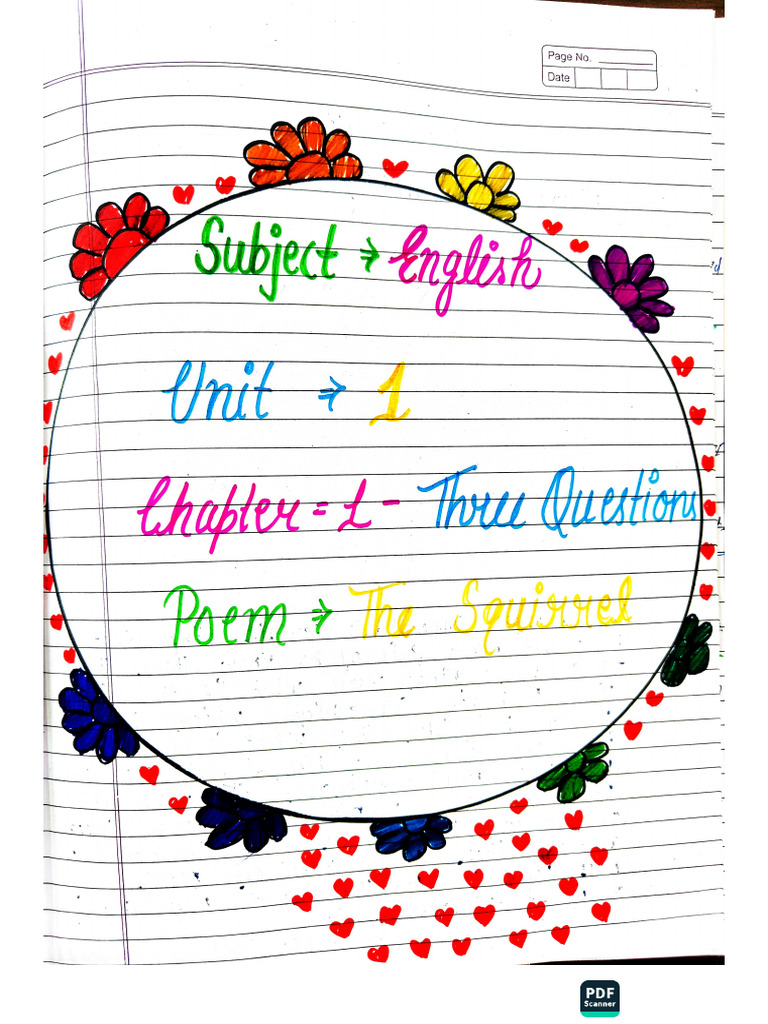 Page No.
Date
Subject → English
Unit ⇒ 1
Chapter = 1 - Three Questions
Poem ⇒ The Squirrel
PDF
Scanner